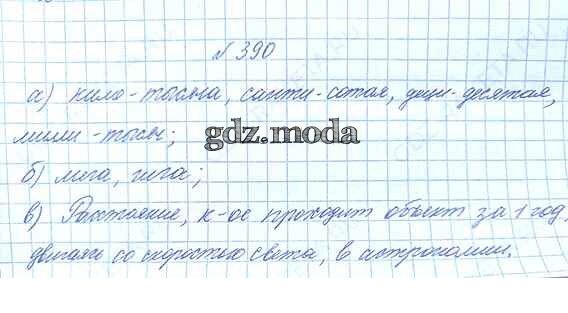 № 390
а) кило - тысяча, санти - сотая, деци - десятая,
милли - тысяч;
gdz.moda
б) мега, гига;
в) Расстояние, к-ое проходит объект за 1 год,
двигаясь со скоростью света, в астрономии.